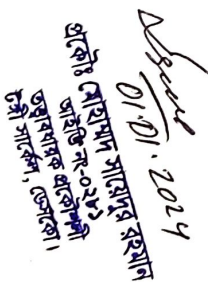 01.01.2024
প্রকৌঃ মোহাম্মদ সায়েদুর রহমান
আইডি নং-০২৮১
তত্ত্বাবধায়ক প্রকৌশলী
টঙ্গী সার্কেল, ডেসকো।